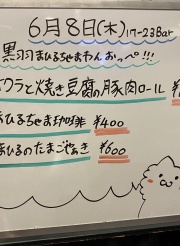 6月8日(木)17-23Bar
黒羽まひるちゃまわんおっぺ!!!
クラと焼き豆腐の豚肉ロール ¥
ひるちゃま珈琲 ¥400
まひるのたまごやき ¥600